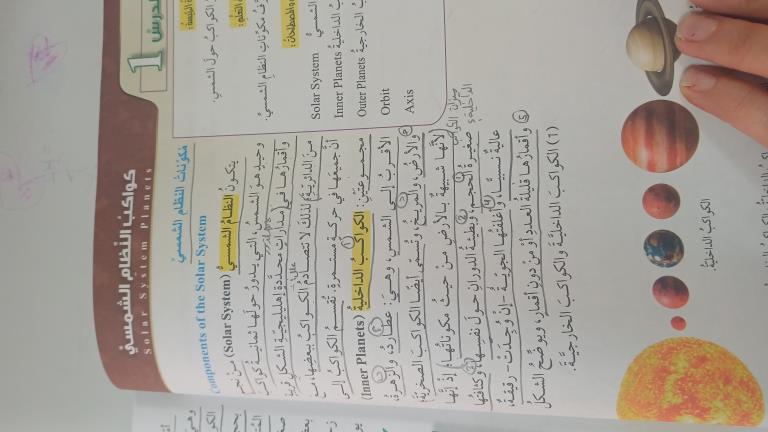 الدرس 1
كواكب النظام الشمسي
Solar System Planets
حول الشمس.
مكونات النظام الشمسي.
Solar System
Inner Planets
Outer Planets
Orbit
Axis
مكونات النظام الشمسي
Components of the Solar System
يتكون النظام الشمسي (Solar System) من نجم
وحيد هو الشمس، التي يدور حولها ثمانية كواكب
وأقمارها في مدارات محددة إهليلجية الشكل قريبة
من الدائرية؛ لذلك لا تتصادم الكواكب ببعضها، مع
أن جميعها في حركة مستمرة. تقسم الكواكب إلى
مجموعتين: الكواكب الداخلية (Inner Planets)
الأقرب إلى الشمس، وهي: عطارد، والزهرة،
والأرض، والمريخ، وتسمى أيضا الكواكب الصخرية؛
لأنها شبيهة بالأرض من حيث مكوناتها؛ إذ إنها
صغيرة الحجم، وبطيئة الدوران حول نفسها، وكثافتها
عالية نسبيا، وأغلفتها الجوية -إن وجدت- رقيقة،
وأقمارها قليلة العدد أو من دون أقمار، ويوضح الشكل
(1) الكواكب الداخلية والكواكب الخارجية.
الكواكب الداخلية.